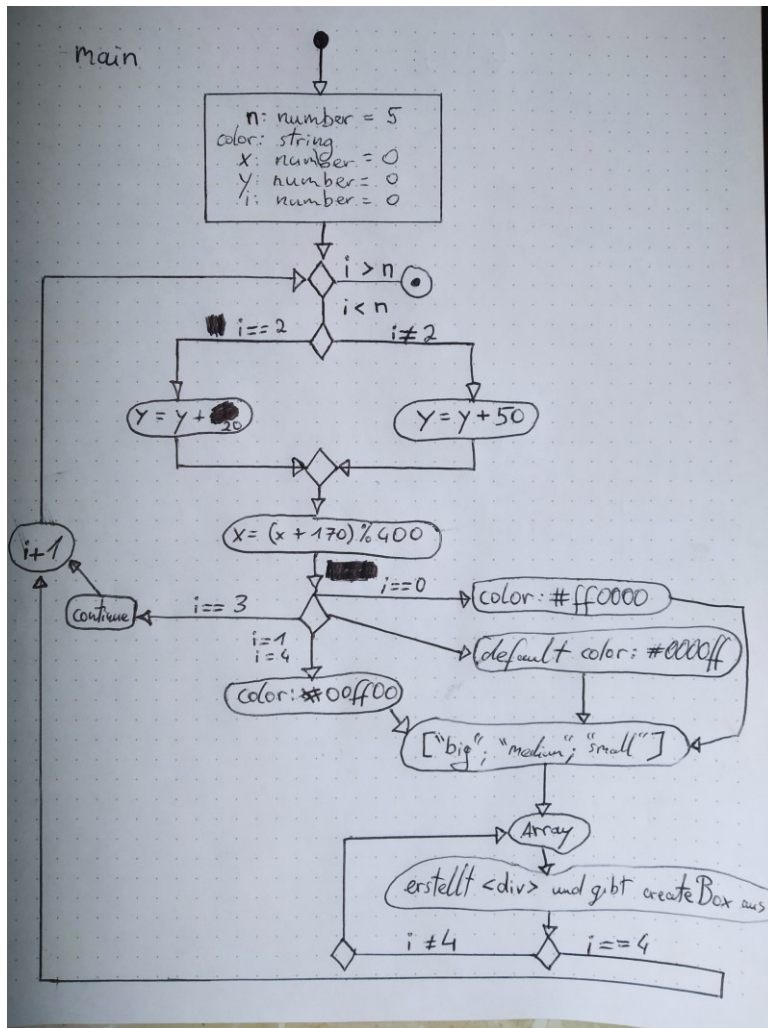 main
n: number = 5
color: string
x: number = 0
y: number = 0
i: number = 0
i > n
i < n
i == 2
i ≠ 2
y = y + 20
y = y + 50
x = (x + 170) % 400
i+1
i == 0
color: #ff0000
continue
i == 3
i=1
i=4
default color: #0000ff
color: #00ff00
["big"; "medium"; "small"]
Array
erstellt <div> und gibt createBox aus
i ≠ 4
i == 4